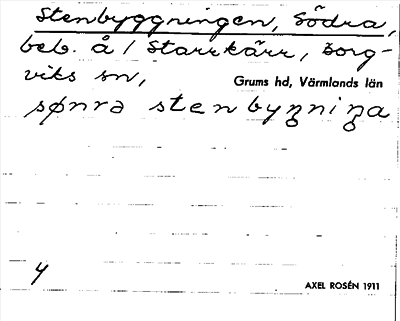 Stenbyggningen, Södra,
beb. å / Starrkärr, Borg-
viks sn,
Grums hd, Värmlands län
sønra stenbyŋniŋa
y
AXEL ROSÉN 1911